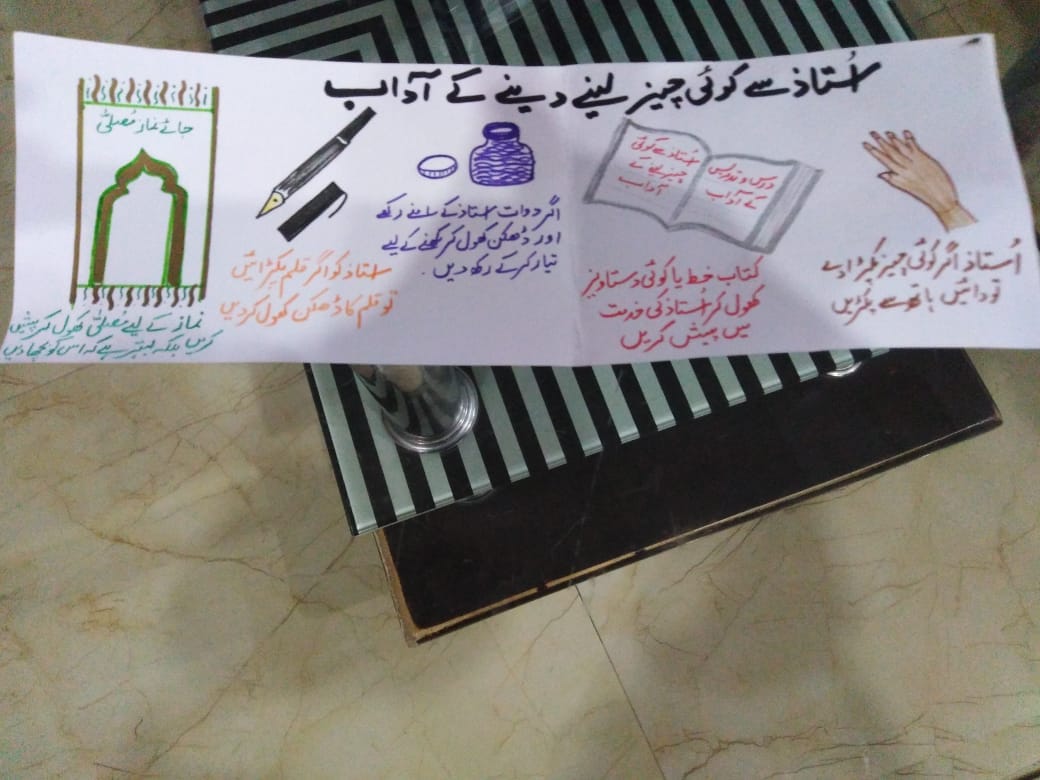 اُستاذ سے کوئی چیز لینے دینے کے آداب
اُستاذ اگر کوئی چیز پکڑا دے
تو دائیں ہاتھ سے پکڑیں
درس و تدریس
کے آداب
اُستاذ سے کوئی
چیز لینے کے
آداب
کتاب خط یا کوئی دستاویز
کھول کر اُستاذ کی خدمت
میں پیش کریں
اگر دوات استاذ کے سامنے رکھے
اور ڈھکن کھول کر لکھنے کے لیے
تیار کر کے رکھ دیں .
استاذ کو اگر قلم پکڑائیں
تو قلم کا ڈھکن کھول کر دیں
جائے نماز مُصلّٰی
نماز کے لیے مُصلّٰی کھول کر پیش
کریں بلکہ بہتر ہے کہ اس کو بچھا دیں